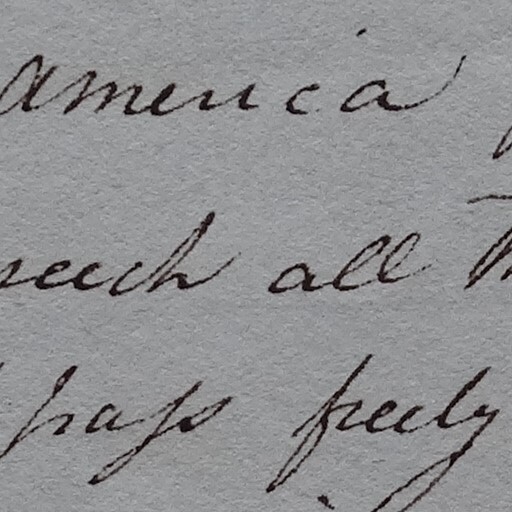 America
all
pass freely